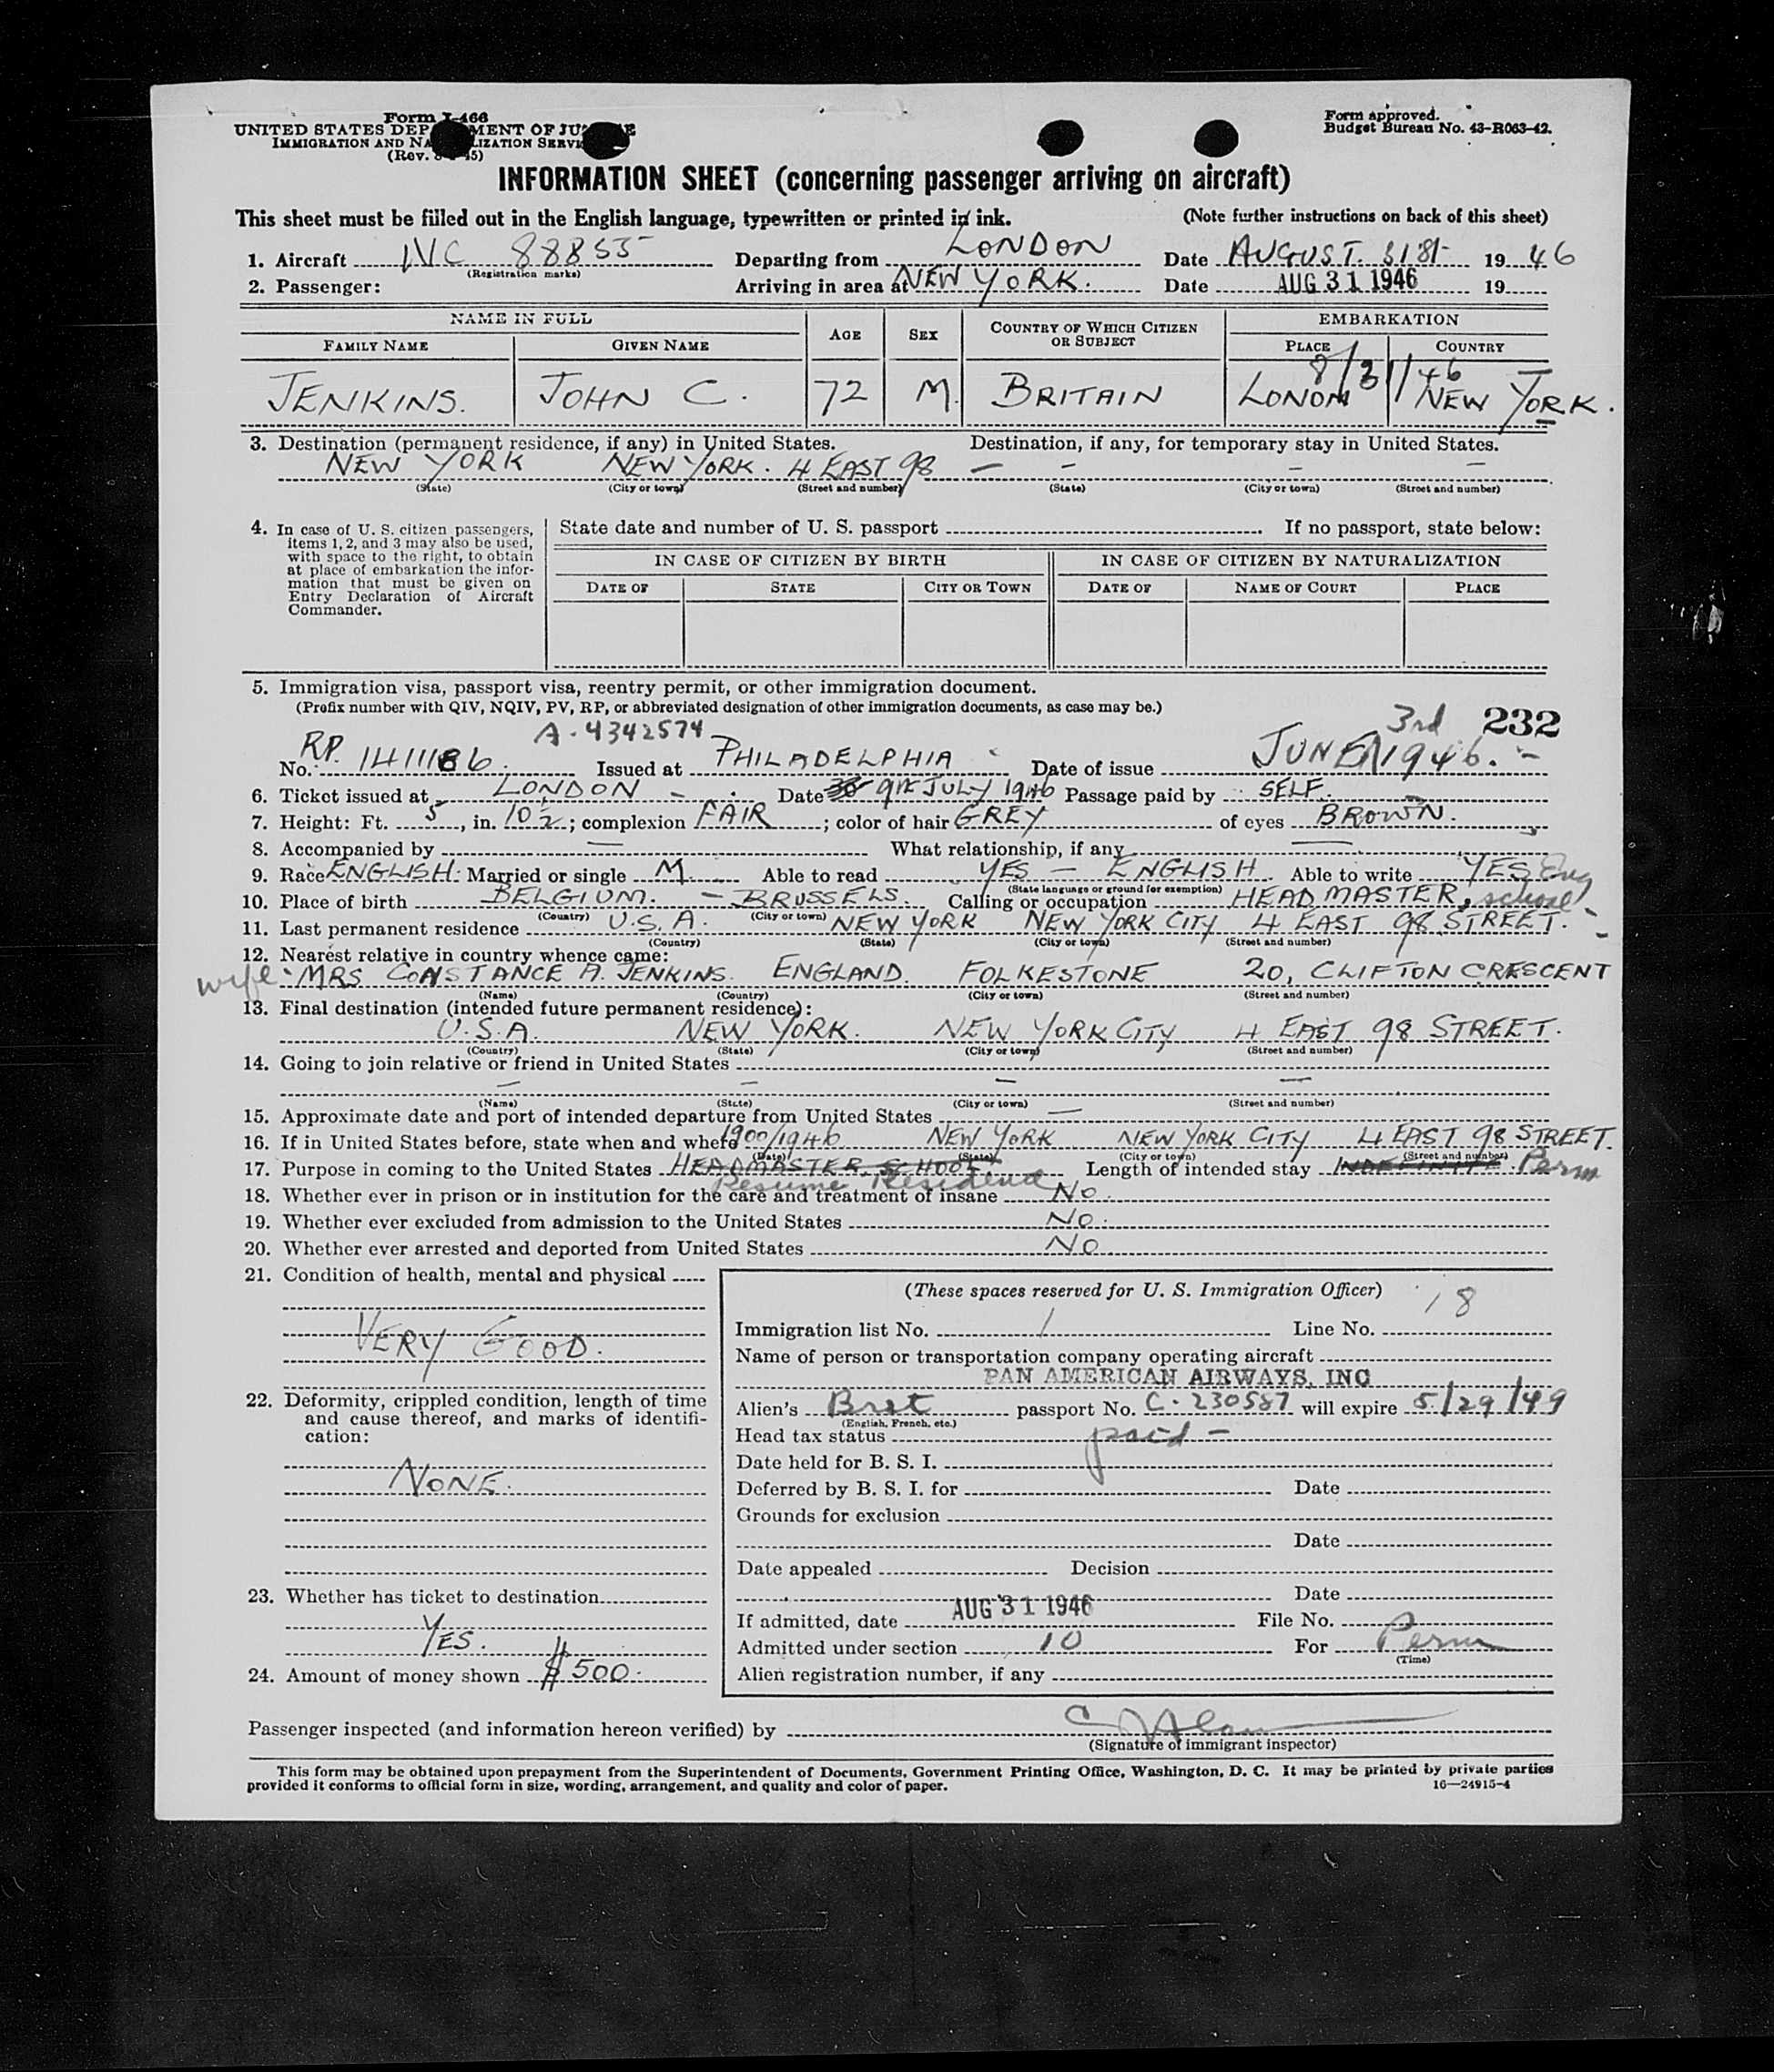 Form I-466
UNITED STATES DEP MENT OF JU
IMMIGRATION AND NA LIZATION SERVI
(Rev. 45)
Form approved.
Budget Bureau No. 43-R063-42.
INFORMATION SHEET (concerning passenger arriving on aircraft)
This sheet must be filled out in the English language, typewritten or printed in ink. (Note further instructions on back of this sheet)
1. Aircraft NC 88855 Departing from LONDON Date AUGUST. 31st 1946
(Registration marks)
2. Passenger: Arriving in area at NEW YORK. Date AUG 31 1946 19
NAME IN FULL AGE SEX COUNTRY OF WHICH CITIZEN OR SUBJECT EMBARKATION
FAMILY NAME GIVEN NAME PLACE COUNTRY
8/31/46
JENKINS. JOHN C. 72 M. BRITAIN LONON NEW YORK.
3. Destination (permanent residence, if any) in United States. Destination, if any, for temporary stay in United States.
NEW YORK NEW YORK. 4 EAST 98 — — — —
(State) (City or town) (Street and number) (State) (City or town) (Street and number)
4. In case of U. S. citizen passengers, items 1, 2, and 3 may also be used, with space to the right, to obtain at place of embarkation the information that must be given on Entry Declaration of Aircraft Commander.
State date and number of U. S. passport If no passport, state below:
IN CASE OF CITIZEN BY BIRTH IN CASE OF CITIZEN BY NATURALIZATION
DATE OF STATE CITY OR TOWN DATE OF NAME OF COURT PLACE
5. Immigration visa, passport visa, reentry permit, or other immigration document.
(Prefix number with QIV, NQIV, PV, RP, or abbreviated designation of other immigration documents, as case may be.)
A-4342574 3rd 232
No. RP. 1411186. Issued at PHILADELPHIA Date of issue JUNE 1946.-
6. Ticket issued at LONDON - Date 9th JULY 1946 Passage paid by SELF.
7. Height: Ft. 5, in. 10½; complexion FAIR; color of hair GREY of eyes BROWN.
8. Accompanied by — What relationship, if any —
9. Race ENGLISH. Married or single M. Able to read YES — ENGLISH Able to write YES Eng
(State language or ground for exemption)
10. Place of birth BELGIUM. - BRUSSELS. Calling or occupation HEADMASTER, school
(Country) (City or town)
11. Last permanent residence U.S.A. NEW YORK NEW YORK CITY 4 EAST 98 STREET.
(Country) (State) (City or town) (Street and number)
12. Nearest relative in country whence came:
wife MRS CONSTANCE A. JENKINS. ENGLAND. FOLKESTONE 20, CLIFTON CRESCENT
(Name) (Country) (City or town) (Street and number)
13. Final destination (intended future permanent residence):
U.S.A. NEW YORK. NEW YORK CITY 4 EAST 98 STREET.
(Country) (State) (City or town) (Street and number)
14. Going to join relative or friend in United States
— — — —
(Name) (State) (City or town) (Street and number)
15. Approximate date and port of intended departure from United States —
16. If in United States before, state when and where 1900/1946 NEW YORK NEW YORK CITY 4 EAST 98 STREET.
(Date) (State) (City or town) (Street and number)
17. Purpose in coming to the United States HEADMASTER SCHOOL. Length of intended stay INDEFINITE Perm
Resume Residence
18. Whether ever in prison or in institution for the care and treatment of insane NO
19. Whether ever excluded from admission to the United States NO.
20. Whether ever arrested and deported from United States NO
21. Condition of health, mental and physical
VERY GOOD.
22. Deformity, crippled condition, length of time and cause thereof, and marks of identification:
NONE.
23. Whether has ticket to destination
YES.
24. Amount of money shown $500.
(These spaces reserved for U. S. Immigration Officer)
Immigration list No. 1 Line No. 18
Name of person or transportation company operating aircraft
PAN AMERICAN AIRWAYS, INC
Alien's Brit passport No. C-230587 will expire 5/29/49
(English, French, etc.)
Head tax status paid -
Date held for B. S. I.
Deferred by B. S. I. for Date
Grounds for exclusion
Date
Date appealed Decision
Date
If admitted, date AUG 31 1946 File No.
Admitted under section 10 For Perm
(Time)
Alien registration number, if any
Passenger inspected (and information hereon verified) by
(Signature of immigrant inspector)
This form may be obtained upon prepayment from the Superintendent of Documents, Government Printing Office, Washington, D. C. It may be printed by private parties
provided it conforms to official form in size, wording, arrangement, and quality and color of paper. 16—24915-4